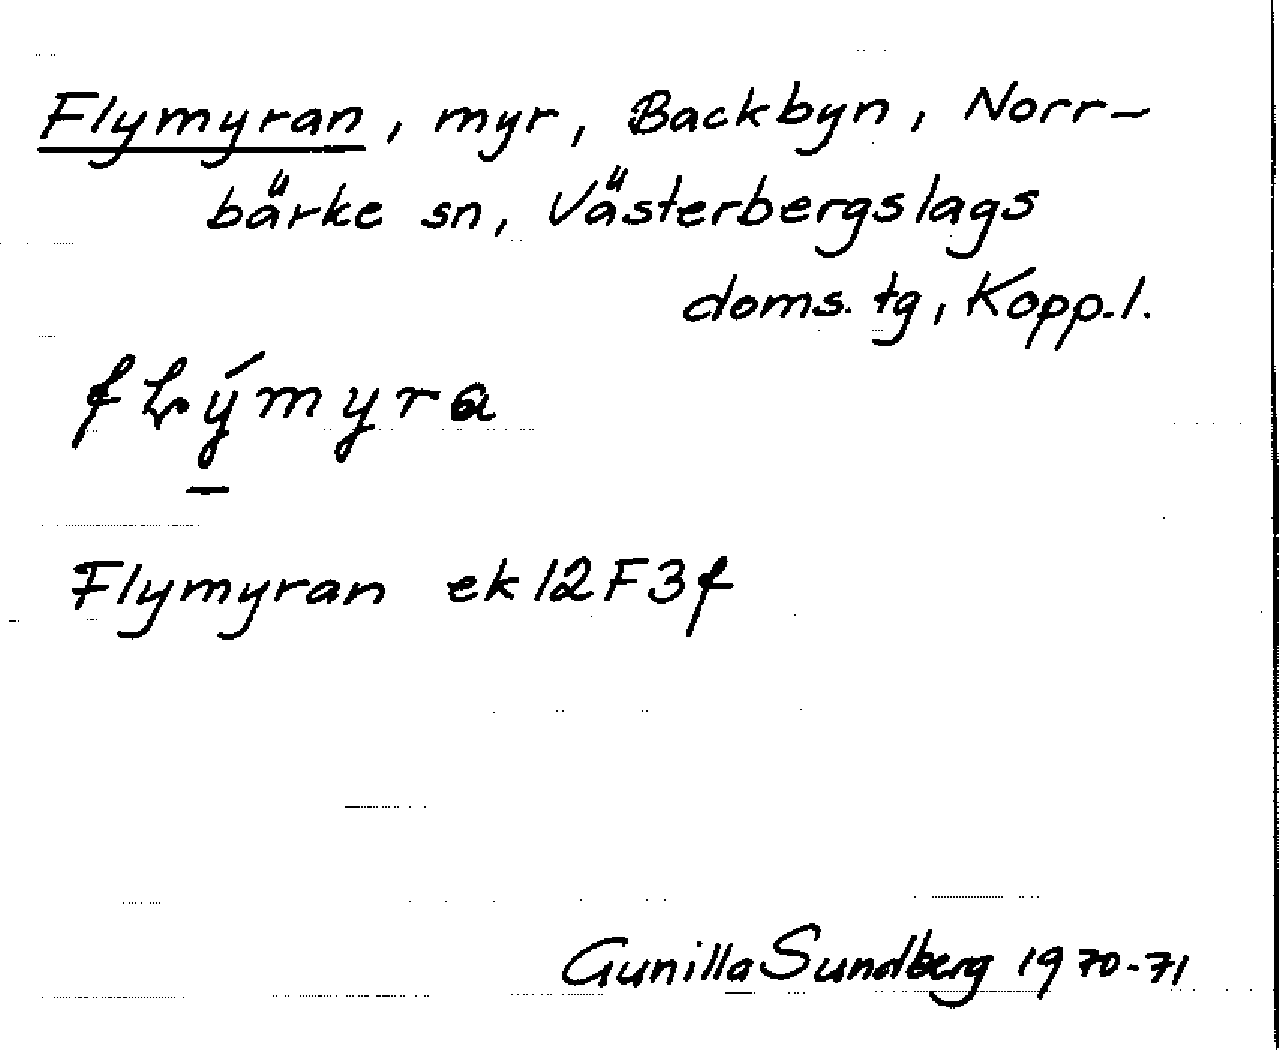 Flymyran, myr, Backbyn, Norr-
bärke sn, Västerbergslags
doms. tg, Kopp. l.
fLýmyra
Flymyran ek 12F3f
Gunilla Sundberg 1970-71